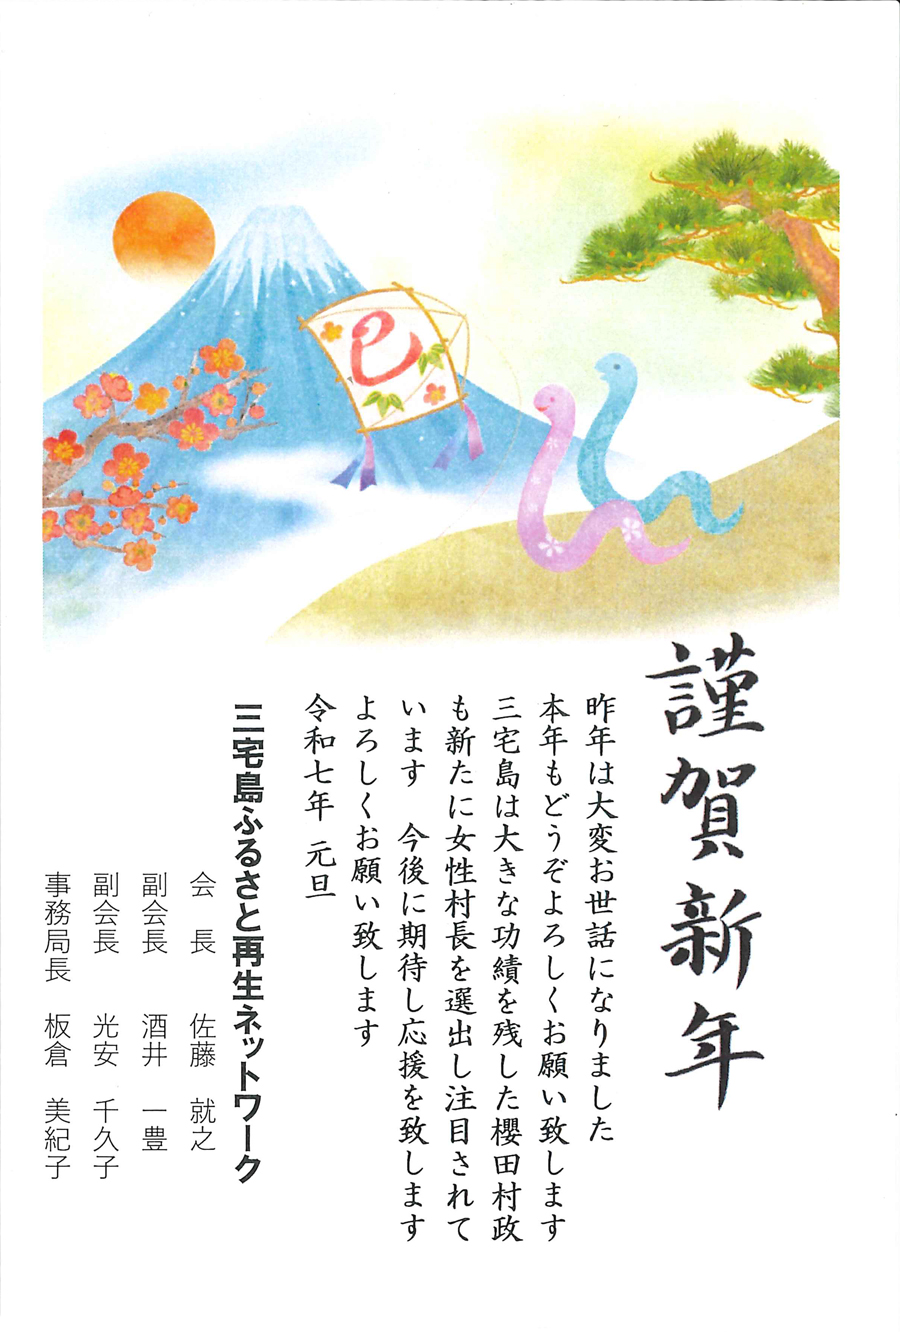 巳
謹賀新年
昨年は大変お世話になりました
本年もどうぞよろしくお願い致します
三宅島は大きな功績を残した櫻田村政
も新たに女性村長を選出し注目されて
います　今後に期待し応援を致します
よろしくお願い致します
令和七年 元旦
三宅島ふるさと再生ネットワーク
会　長　佐藤　就之
副会長　酒井　一豊
副会長　光安　千久子
事務局長　板倉　美紀子